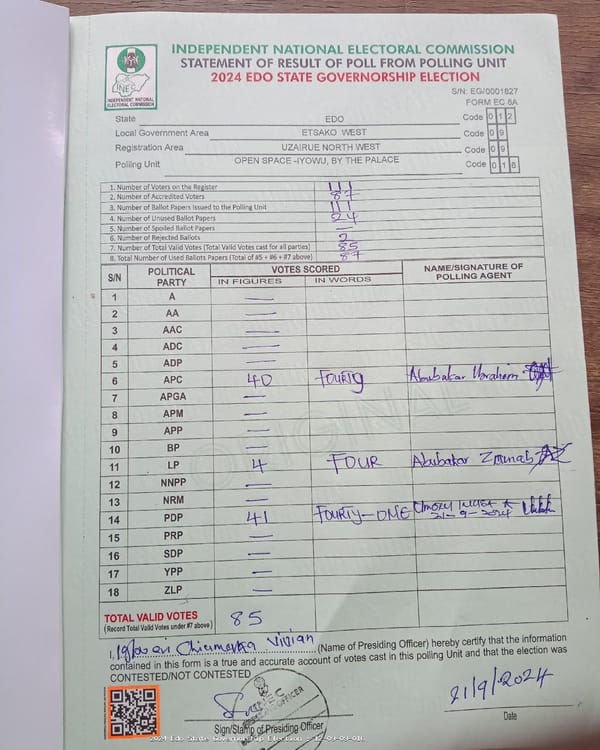 INDEPENDENT NATIONAL ELECTORAL COMMISSION
STATEMENT OF RESULT OF POLL FROM POLLING UNIT
2024 EDO STATE GOVERNORSHIP ELECTION
INEC
INDEPENDENT NATIONAL ELECTORAL COMMISSION
S/N: EG/0001827
FORM EC 8A
State EDO Code 0 1 2
Local Government Area ETSAKO WEST Code 0 9
Registration Area UZAIRUE NORTH WEST Code 0 9
Polling Unit OPEN SPACE -IYOWU, BY THE PALACE Code 0 1 6
1. Number of Voters on the Register 111
2. Number of Accredited Voters 87
3. Number of Ballot Papers Issued to the Polling Unit 111
4. Number of Unused Ballot Papers 24
5. Number of Spoiled Ballot Papers —
6. Number of Rejected Ballots 2
7. Number of Total Valid Votes (Total Valid Votes cast for all parties) 85
8. Total Number of Used Ballots Papers (Total of #5 + #6 + #7 above) 87
S/N POLITICAL PARTY VOTES SCORED NAME/SIGNATURE OF POLLING AGENT
IN FIGURES IN WORDS
1 A —
2 AA —
3 AAC —
4 ADC —
5 ADP —
6 APC 40 FOURTY Abubakar Ibrahim
7 APGA —
8 APM —
9 APP —
10 BP —
11 LP 4 FOUR Abubakar Zainab
12 NNPP —
13 NRM —
14 PDP 41 FOURTY-ONE
21-9-2024
15 PRP —
16 SDP —
17 YPP —
18 ZLP —
ORIGINAL
TOTAL VALID VOTES 85
(Record Total Valid Votes under #7 above)
I, Vivian (Name of Presiding Officer) hereby certify that the information
contained in this form is a true and accurate account of votes cast in this polling Unit and that the election was
CONTESTED/NOT CONTESTED
INEC
OFFICER
21/9/2024
Sign/Stamp of Presiding Officer Date
2024 Edo State Governorship Election - 12-09-09-016